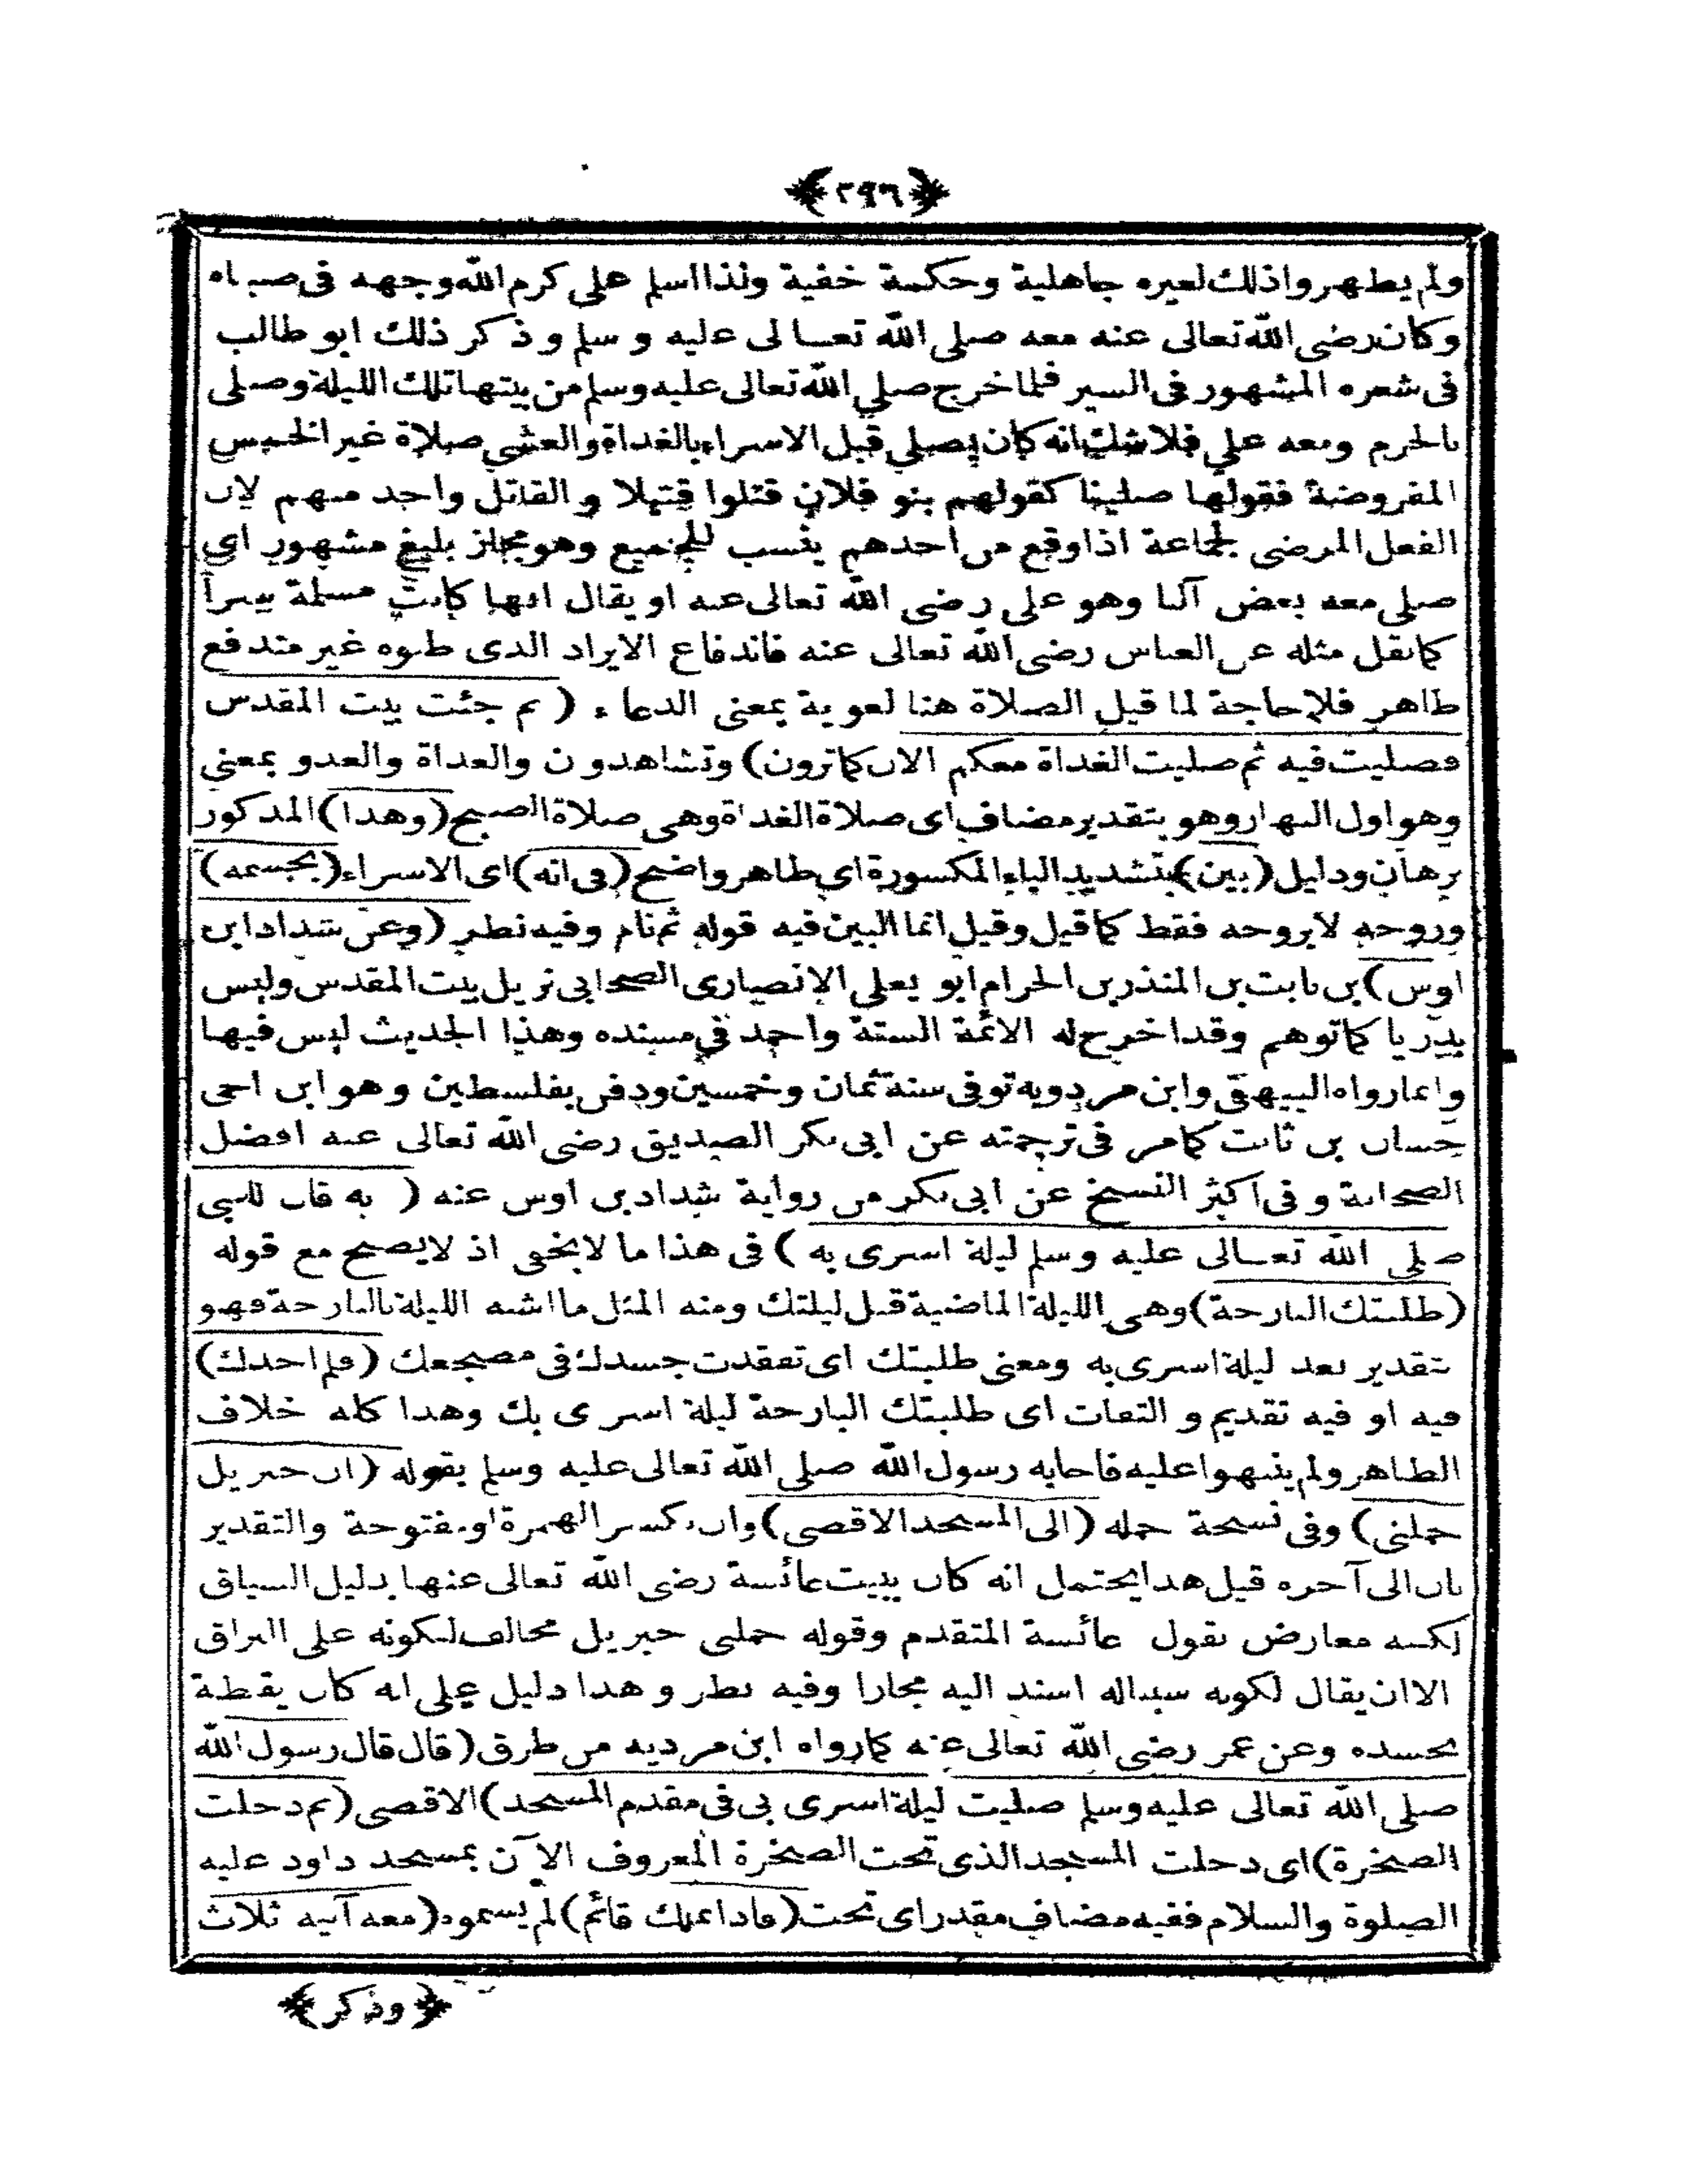 ﴿٢٩٦﴾
ولم يظهروا ذلك لغيره جاهلية وحكمة خفية ولذا اسلم على كرم الله وجهه فى صباه
وكان رضى الله تعالى عنه معه صلى الله تعالى عليه وسلم وذكر ذلك ابو طالب
فى شعره المشهور فى السير فلما خرج صلى الله تعالى عليه وسلم من بيتها تلك الليلة وصلى
بالحرم ومعه على فلا شك انه كان يصلى قبل الاسراء بالغداة والعشى صلاة غير الخمس
المفروضة فقولها صلينا كقولهم بنو فلان قتلوا قتيلا والقاتل واحد منهم لان
الفعل المرضى لجماعة اذا وقع من احدهم ينسب للجميع وهو مجاز بليغ مشهور اى
صلى معه بعض آلنا وهو على رضى الله تعالى عنه او يقال انها كانت مسلمة سرا
كما نقل مثله عن العباس رضى الله تعالى عنه فاندفاع الايراد الذى ظنوه غير مندفع
ظاهر فلا حاجة لما قيل الصلاة هنا لغوية بمعنى الدعاء ( ثم جئت بيت المقدس
فصليت فيه ثم صليت الغداة معكم الان كما ترون) وتشاهدون والغداة والغدو بمعنى
وهو اول النهار وهو بتقدير مضاف اى صلاة الغداة وهى صلاة الصبح (وهذا) المذكور
برهان ودليل (بين) بتشديد الياء المكسورة اى ظاهر واضح (فى انه) اى الاسراء (بجسمه)
وروحه لا بروحه فقط كما قيل وقيل انما البين فيه قوله ثم نام وفيه نظر (وعن شداد ابن
اوس) بن ثابت بن المنذر بن الحرام ابو يعلى الانصارى الصحابى نزيل بيت المقدس وليس
بدريا كما توهم وقد اخرج له الائمة الستة واحمد فى مسنده وهذا الحديث ليس فيها
وانما رواه البيهقى وابن مردويه توفى سنة ثمان وخمسين ودفن بفلسطين وهو ابن اخى
حسان بن ثابت كما مر فى ترجمته عن ابى بكر الصديق رضى الله تعالى عنه افضل
الصحابة وفى اكثر النسخ عن ابى بكر من رواية شداد بن اوس عنه ( به قال للنبى
صلى الله تعالى عليه وسلم ليلة اسرى به ) فى هذا ما لا يخفى اذ لا يصح مع قوله
(طلبتك البارحة) وهى الليلة الماضية قبل ليلتك ومنه المثل ما اشبه الليلة بالبارحة فهو
بتقدير بعد ليلة اسرى به ومعنى طلبتك اى تفقدت جسدك فى مضجعك (فلم اجدك)
فيه او فيه تقديم والتفات اى طلبتك البارحة ليلة اسرى بك وهذا كله خلاف
الظاهر ولم ينبهوا عليه فاجابه رسول الله صلى الله تعالى عليه وسلم بقوله (ان جبريل
حملنى) وفى نسخة حمله (الى المسجد الاقصى) وان بكسر الهمزة او بفتوحة والتقدير
بان الى آخره قيل هذا يحتمل انه كان ببيت عائشة رضى الله تعالى عنها بدليل السياق
لكنه معارض بقول عائشة المتقدم وقوله حملنى جبريل مخالف لكونه على البراق
الا ان يقال لكونه سبباله اسند اليه مجازا وفيه نظر وهذا دليل على انه كان يقظة
بجسده وعن عمر رضى الله تعالى عنه كما رواه ابن مرديه من طرق (قال قال رسول الله
صلى الله تعالى عليه وسلم صليت ليلة اسرى بى فى مقدم المسجد) الاقصى (ثم دخلت
الصخرة) اى دخلت المسجد الذى تحت الصخرة المعروف الآن بمسجد داود عليه
الصلوة والسلام ففيه مضاف مقدر اى تحت (فاذا بملك قائم) لم يسموه (معه آنية ثلاث
﴿وذكر﴾